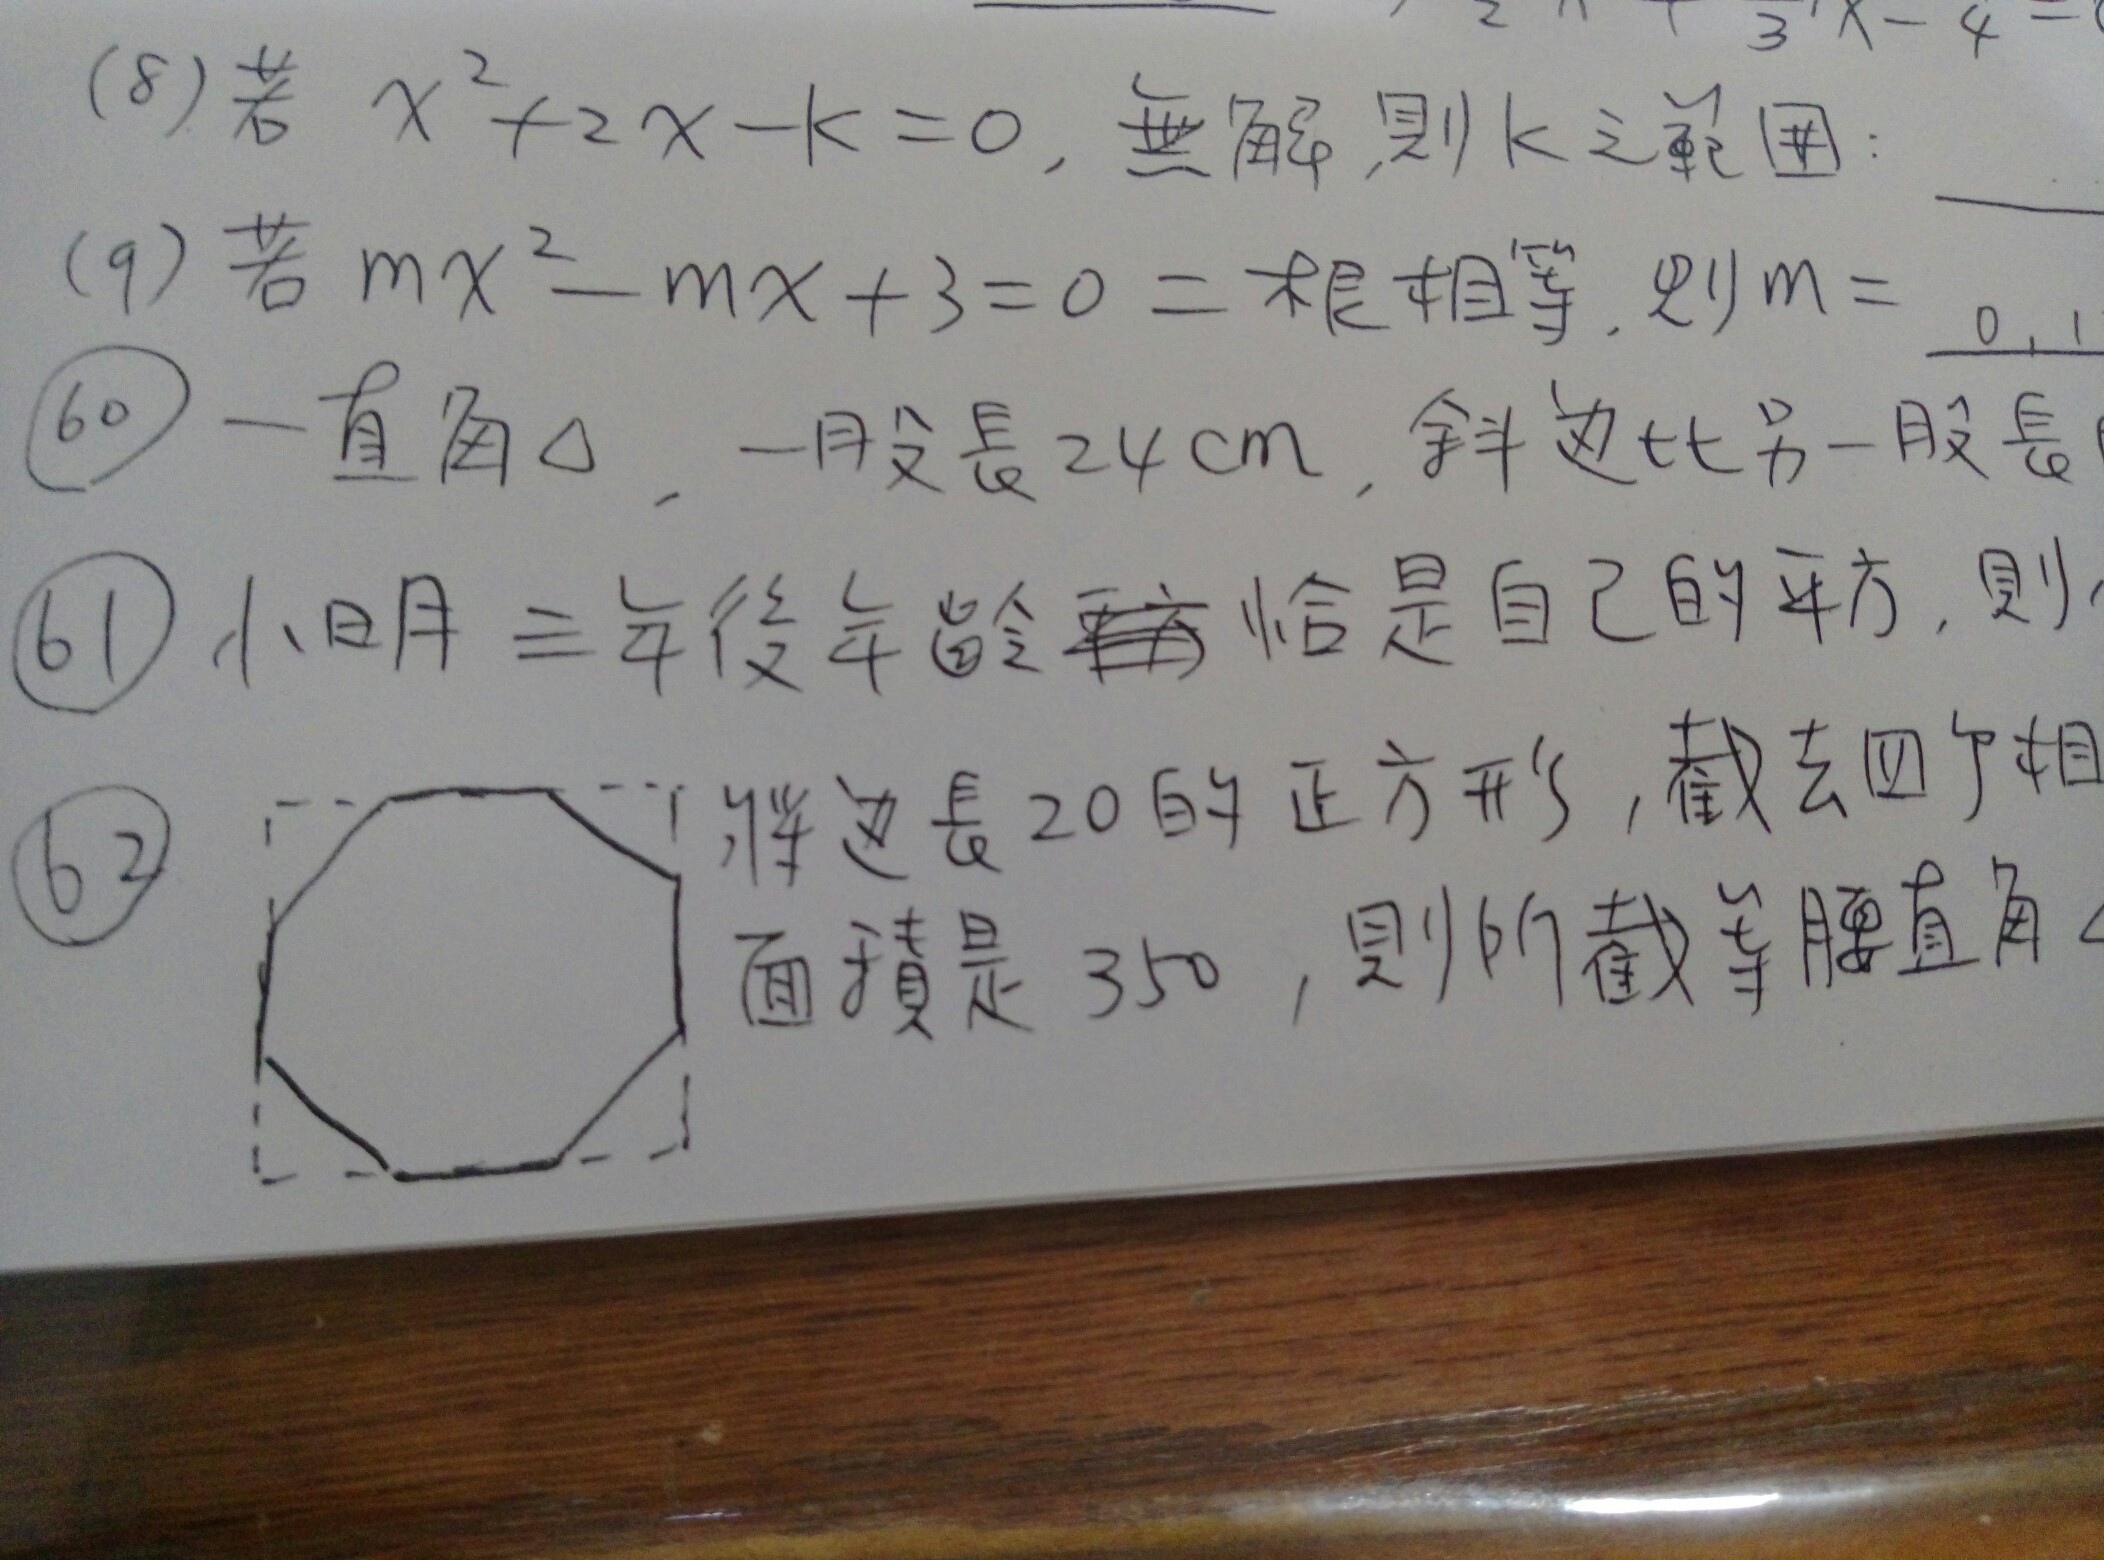 (8) 若 x²+2x-k=0, 無解, 則k之範围:
(9) 若 mx²-mx+3=0 二根相等, 則m= 0, 1
60 一直角△, 一股長24cm, 斜边比另一股長
61 小明三年後年齡恰是自己的平方, 則
62 將边長20的正方形, 截去四个相
面積是350, 則所截等腰直角△